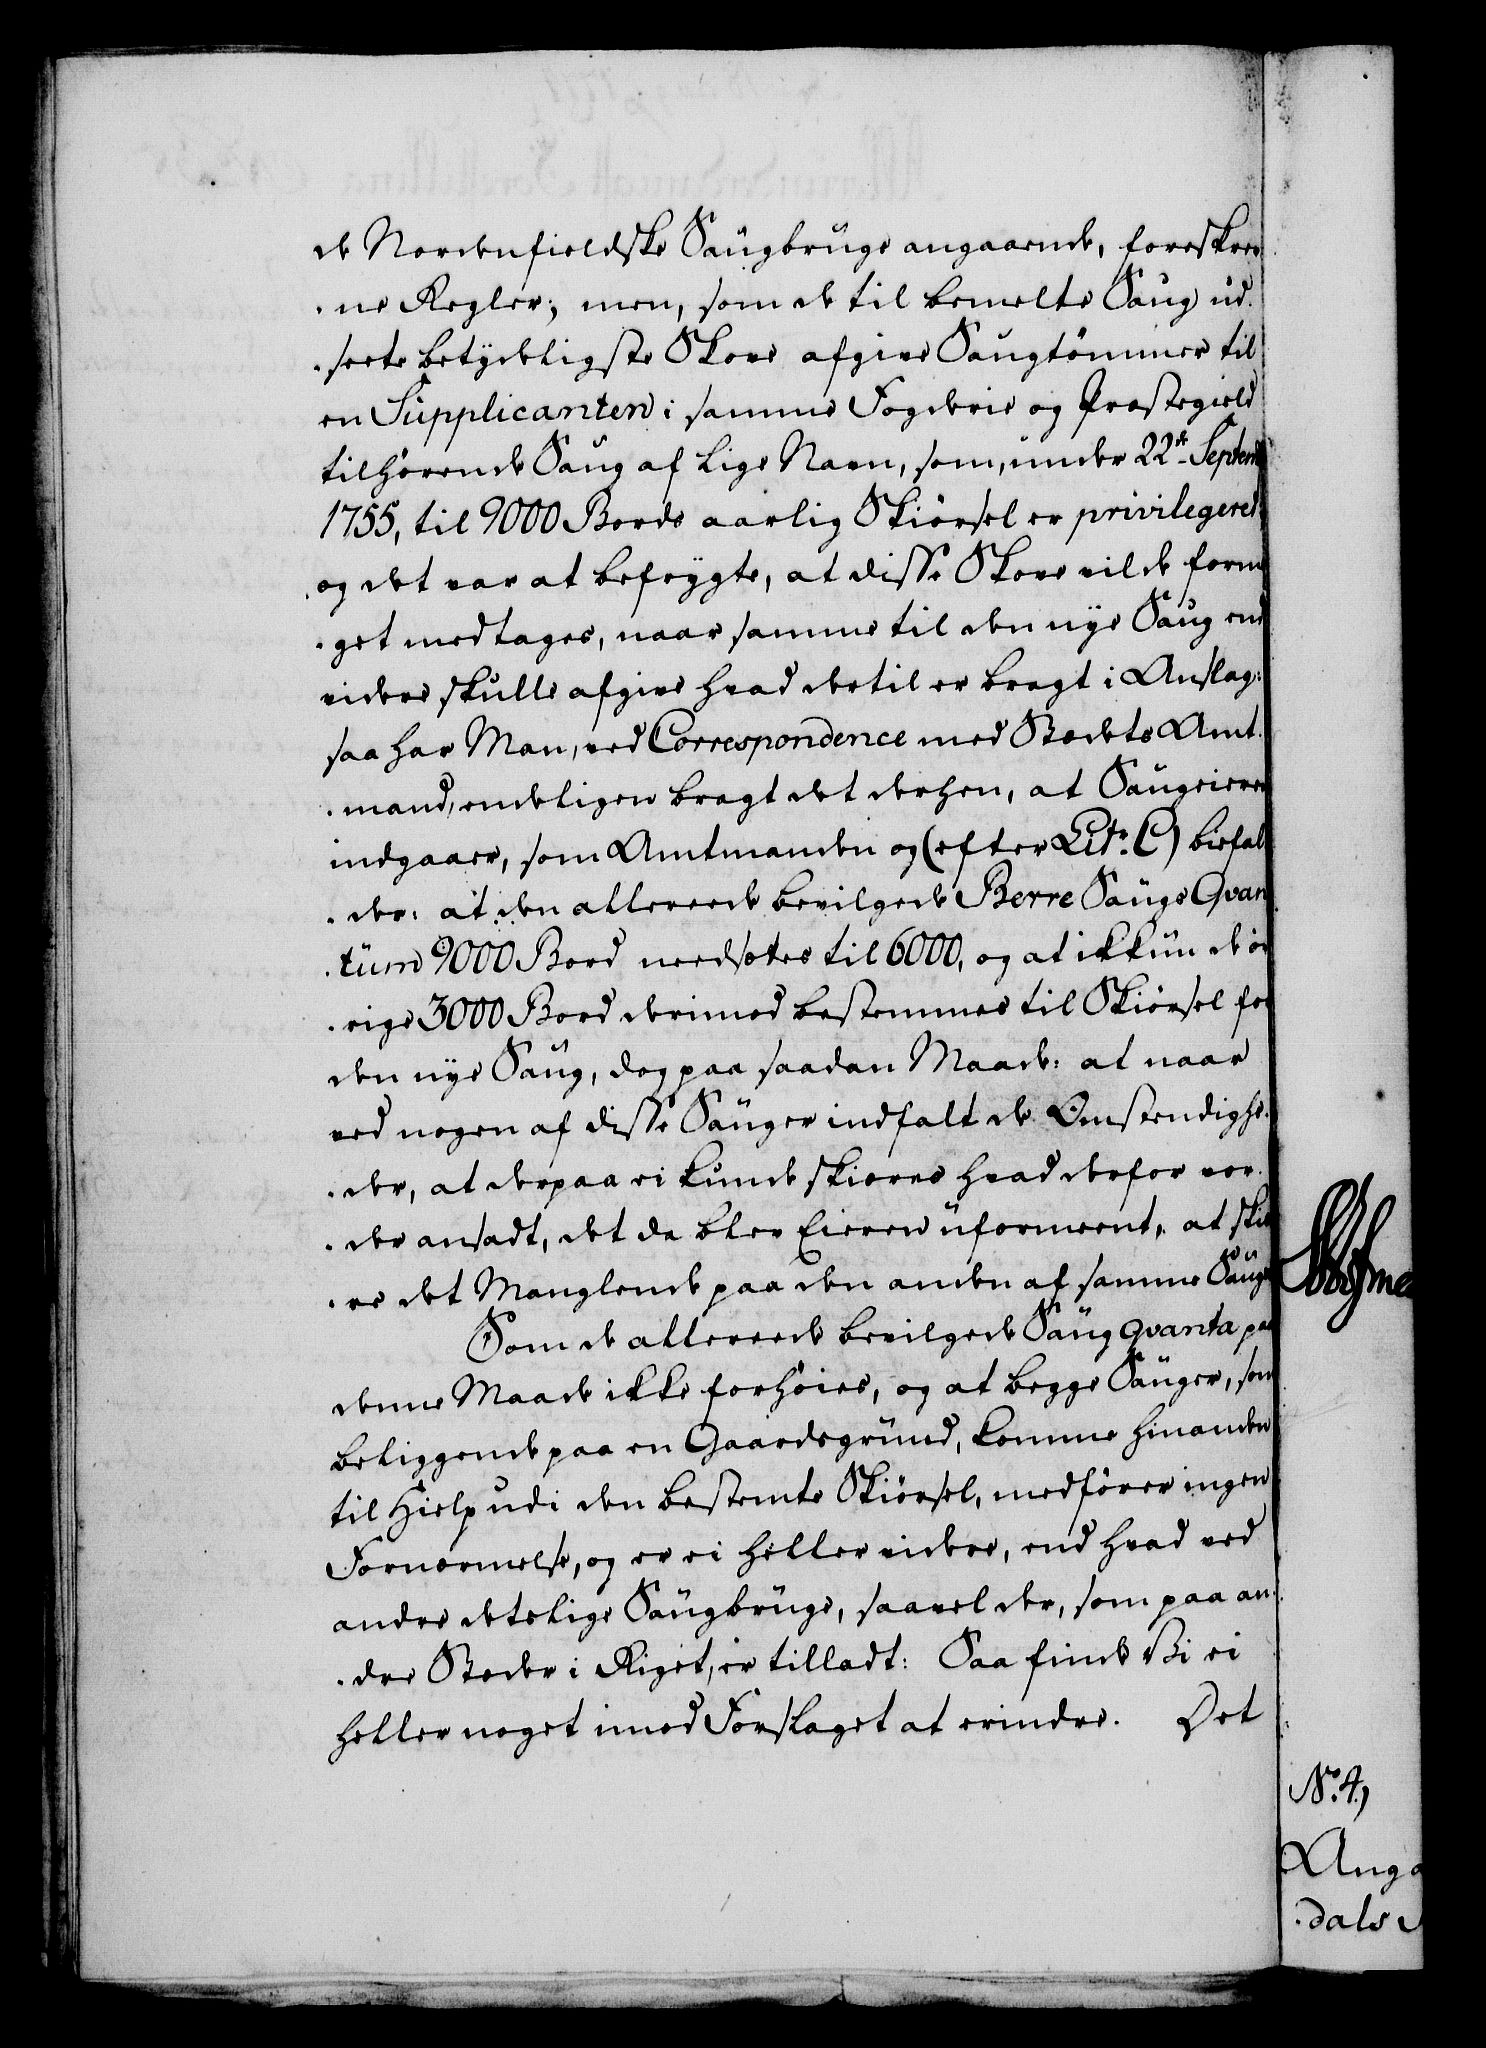 de Nordenfieldske Saugbruge angaaende, foreskrev
ne Regler; men, som de til bemelte Saug ud.
seete betydeligste Skove afgive Saugtømmer til
en Supplicanten i samme Fogderie og Præstegield
tilhørende Saug af lige Navn, som, under 22de Septemb
1755, til 9000 Bords aarlig Skiørsel er privilegeret
og det var at befrygte, at disse Skove vilde form
get medtages, naar samme til den nye Saug end
videre skulle afgive hvad dertil er bragt i Anslag:
saa har Man, ved Correspondence med Stedets Amt.
mand, endeligen bragt det derhen, at Saugeieren
indgaaer, som Amtmanden og (efter Litr. C) biefal
der: at den allereede bevilgede Berre Saugs Qvan
tum 9000 Bord nedsættes til 6000, og at ikkun de øv
rige 3000 Bord derimod bestemmes til Skiørsel for
den nye Saug, dog paa saadan Maade: at naar
ved nogen af disse Sauger indfalt de Omstendighe.
der, at derpaa ei kunde skieres hvad derfor vor.
der ansadt, det da blev Eieren uformeent, at skie
re det Manglende paa den anden af samme Sauge
Som de allereede bevilgede Saug Qvanta paa
denne Maade ikke forhøies, og at begge Sauger, som
beliggende paa en Gaardsgrund, komme hinanden
til Hielp udi den bestemte Skiørsel, medfører ingen
Fornærmelse, og er ei heller videre, end hvad ved
andre deslige Saugbruge, saavel der, som paa an.
dre Steder i Riget, er tilladt: Saa finde Vi ei
heller noget imod Forslaget at erindre. Det
No. 4,
Anga
dals